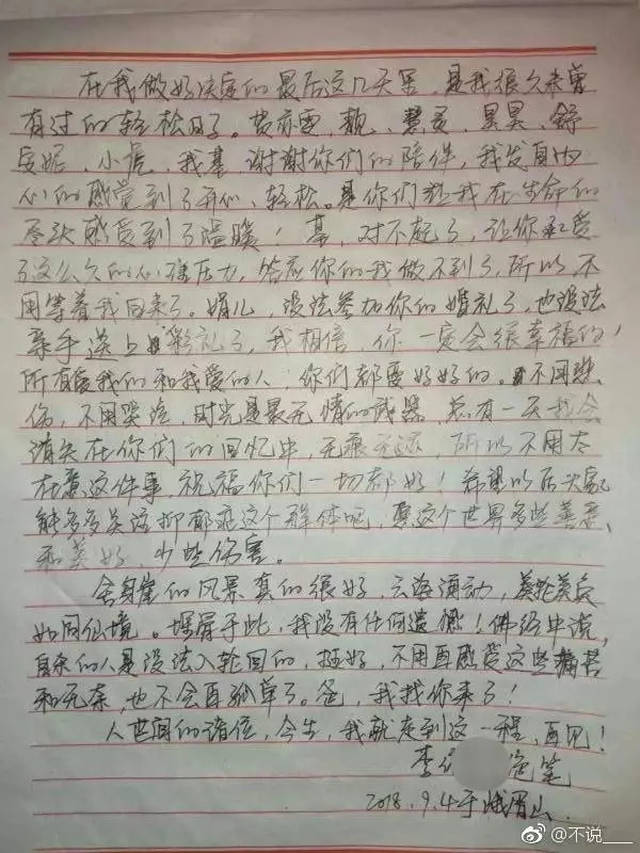 在我做好决定的最后这几天里，是我很久未曾
有过的轻松日子。黄亦雯、靓、慧灵、昊昊、舒
安妮、小虎、我基，谢谢你们的陪伴，我发自内
心的感觉到了开心、轻松。是你们让我在生命的
尽头感受到了温暖！基，对不起了，让你承受
了这么久的心理压力，答应你的我做不到了，所以不
用等着我回来了。娟儿，没法参加你的婚礼了，也没法
亲手送上彩礼了，我相信，你一定会很幸福的！
所有爱我的和我爱的人，你们都要好好的。不用悲
伤，不用哭泣，时光是最无情的武器，总有一天我会
消失在你们的回忆中，无痕无迹，所以不用太
在意这件事，祝福你们一切都好！希望以后大家
能多多关注抑郁症这个群体吧，愿这个世界多些善意、
和美好，少些伤害。
舍身崖的风景真的很好，云海涌动，美轮美奂
如同仙境。埋尸于此，我没有任何遗憾！佛经中说，
自杀的人是没法入轮回的，挺好，不用再感受这些痛苦
和无奈，也不会再孤单了。爸，我找你来了！
人世间的诸位，今生，我就走到这一程，再见！
李 绝笔
2018.9.4于峨眉山
@不说___